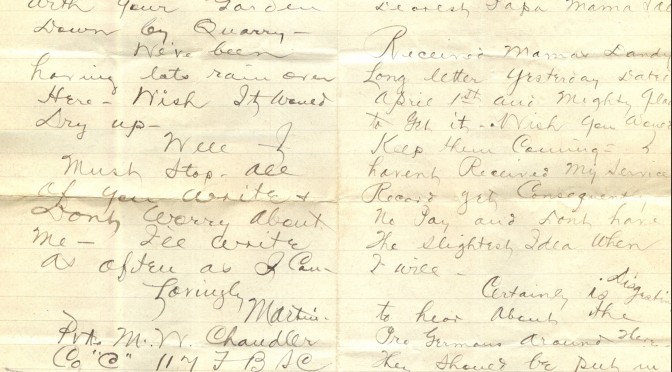 With your Garden
Down by Quarry—
We've been
having lots rain over
Here— Wish It would
Dry up—
Well I
Must Stop. all
of you write &
Dont Worry About
Me— I'll write
As often as I Can—
Lovingly
Martin.
Pvt. M. W. Chandler
Co "C" 117 F B SC
Dearest Papa Mama
Received Mamas Dandy
Long letter Yesterday Dated
April 1st and Mighty Gla
to Get it— Wish You would
Keep them Coming— I
havent Received My Service
Record yet Consequent
No Pay and Dont have
The Slightest Idea When
I will—
Certainly is Disgusti
to hear About the
Pro Germans Around Her
They Should be put in